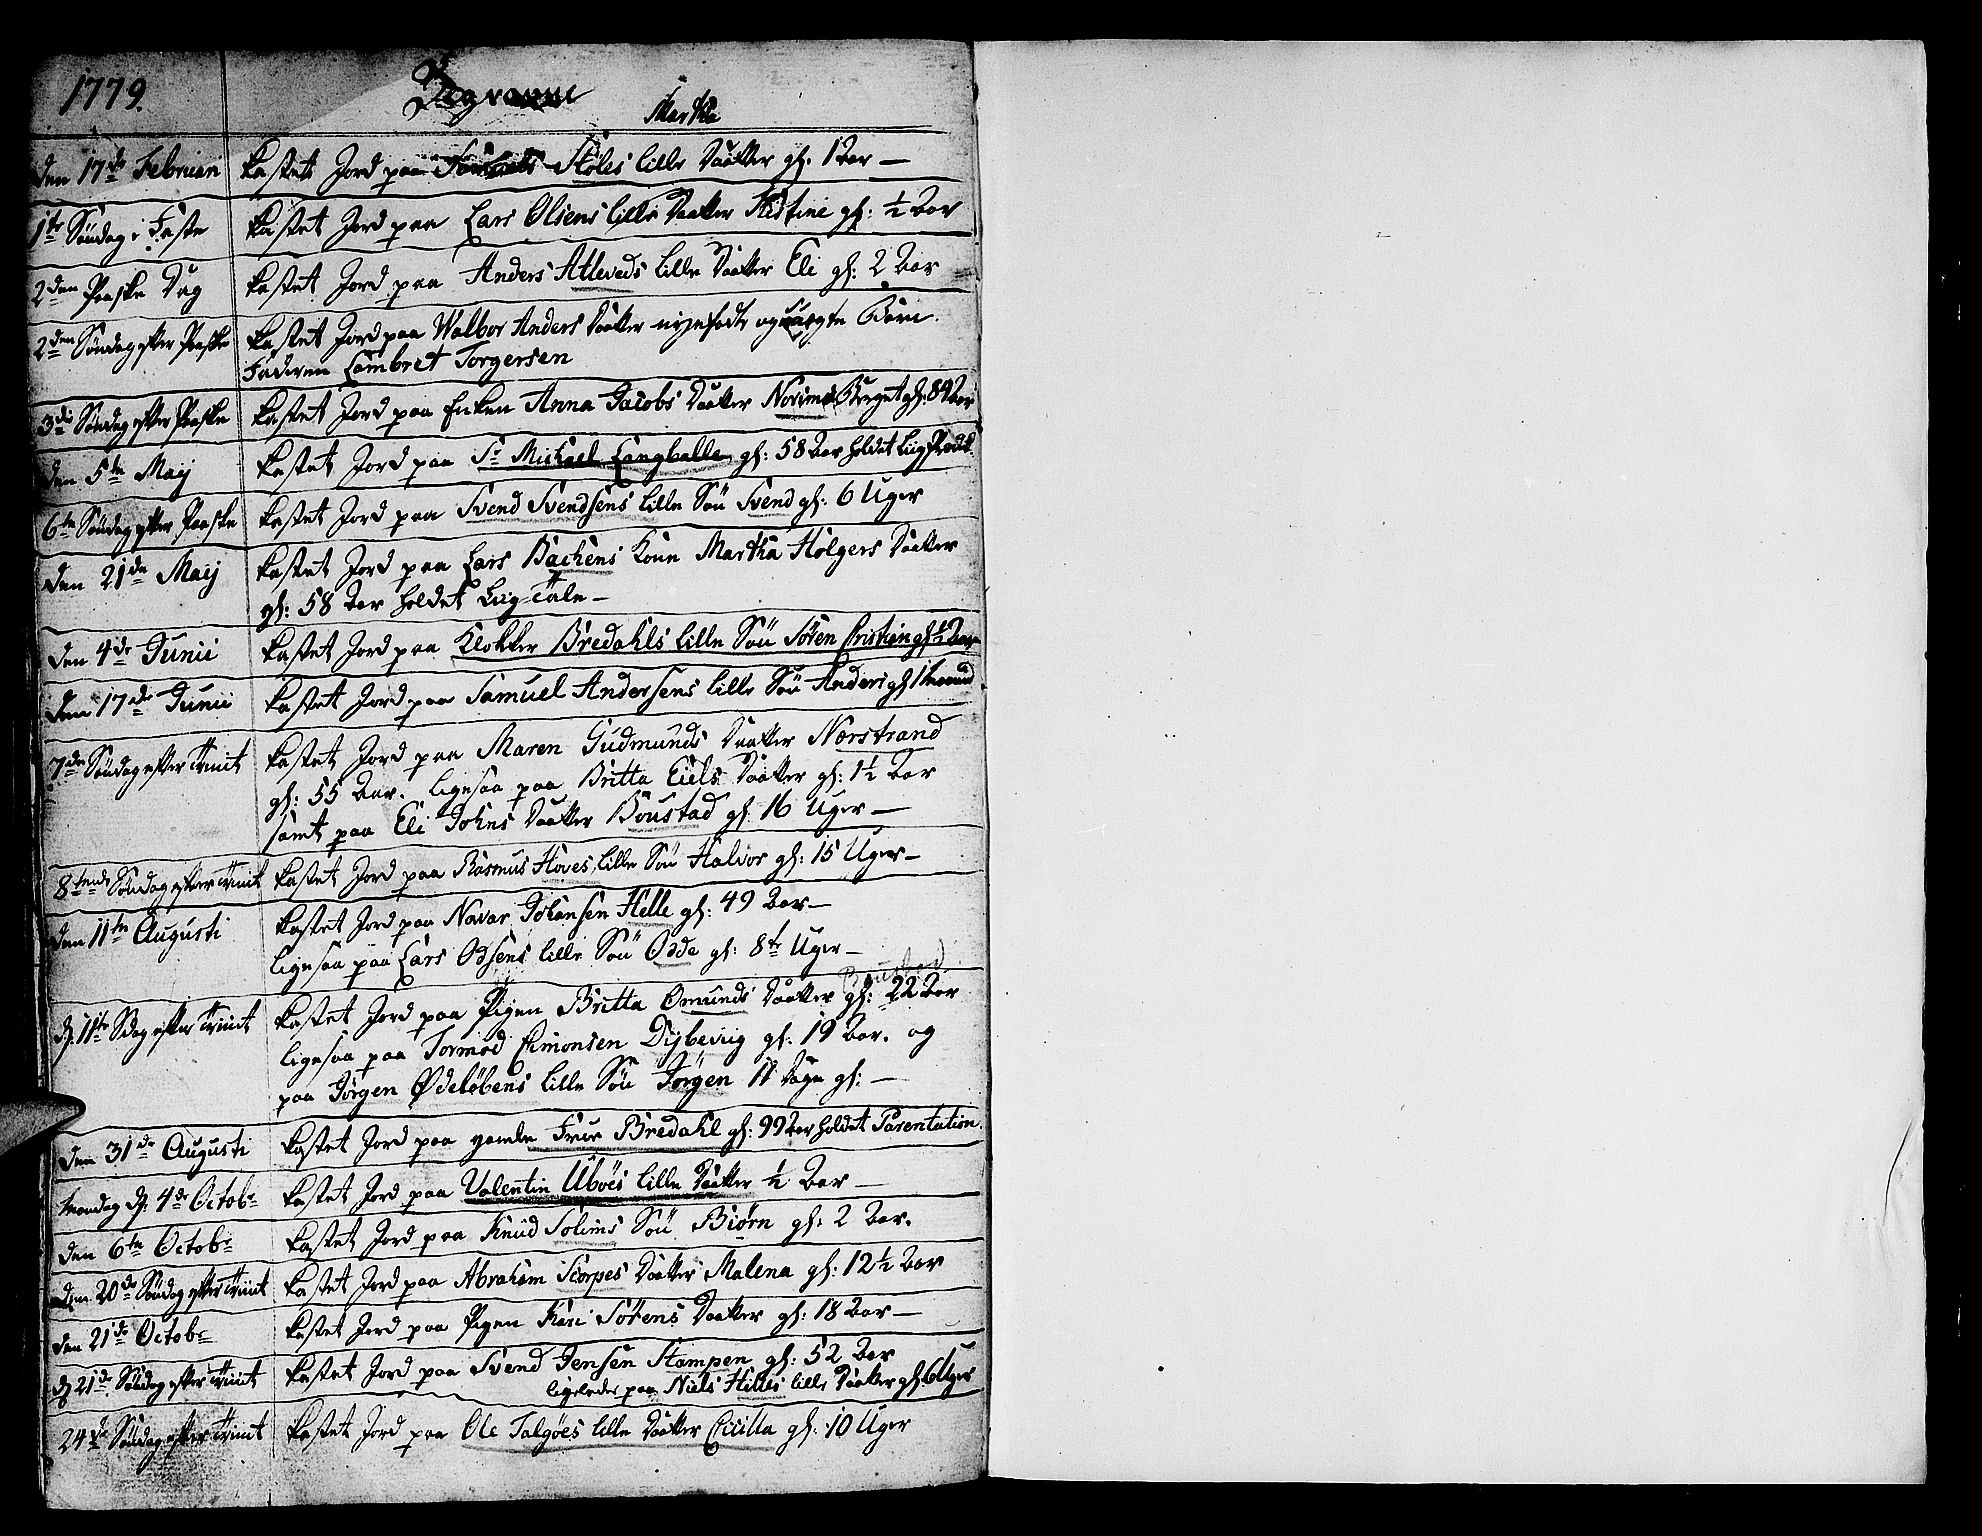 1779. Begravne
Martha
den 17de Februari kastet Jord paa Støles lille Daatter gl: 1 Aar —
1te Søndag i Faste kastet Jord paa Lars Olsens lille Daatter Kistine gl: ½ Aar
2den Paaske Dag kastet Jord paa Anders Atleveds lille Daatter Eli gl: 2 Aar
2den Søndag efter Paaske kastet Jord paa Walbor Anders Daatter nyefødte og uægte Barn.
Faderen Lambret Torgersen
3de Søndag efter Paaske kastet Jord paa Enken Anna Jacobs Daatter gl: 84 Aar
den 5te Maij kastet Jord paa Sr Michael Langballe gl: 58 Aar holdet Liig Prædik
6te Søndag efter Paaske kastet Jord paa Svend Svendsens lille Søn Svend gl: 6 Uger
den 21de Maij kastet Jord paa Lars Bachens Kone Martha Holgers Daatter
gl: 58 Aar holdet Liig-Tale —
den 4de Junii kastet Jord paa Klokker Bredahls lille Søn Søren Cristien gl ½ Aar
den 17de Junii kastet Jord paa Samuel Andersens lille Søn Anders gl 1 Maaned
7de Søndag efter Trinit kastet Jord paa Maren Gudmunds Daatter Nørstrand
gl: 55 Aar. ligesaa paa Britta Eiels Daatter gl: 1½ Aar
samt paa Eli Johns Daatter Boustad gl: 16 Uger —
8tende Søndag efter Trinit kastet Jord paa Rasmus Hoves lille Søn Halvor gl: 15 Uger —
den 11te Augusti kastet Jord paa Navar Johansen Helle gl: 49 Aar —
ligesaa paa Lars Odsens lille Søn Odde gl: 8te Uger —
Boustad
d: 11te Sdag efter Trinit kastet Jord paa Pigen Britta Omunds Daatter gl: 22 Aar
ligesaa paa Tormod Simonsen Dybevig gl: 19 Aar. og
paa Jørgen Ødeløbens lille Søn Jørgen 11 Dage gl: —
den 31de Augusti kastet Jord paa gamle Frue Bredahl gl: 99 Aar holdet Parentation.
Mandag d: 4de Octobr kastet Jord paa Valentin Uböes lille Daatter ½ Aar —
den 6te Octobr kastet Jord paa Knud Solims Søn Biørn gl: 2 Aar.
den 20de Søndag efter Trinit kastet Jord paa Abraham Scorpes Daatter Malena gl: 12½ Aar
den 21de Octobr kastet Jord paa Pigen Kari Sørens Daatter gl: 18 Aar —
d 21de Søndag efter Trinit kastet Jord paa Svend Jensen Stampen gl: 52 Aar
ligeledes paa Niels Hilles lille Daatter gl 6 Uger
24de Søndag efter Trinit kastet Jord paa Ole Talgøes lille Daatter Cicilla gl: 10 Uger